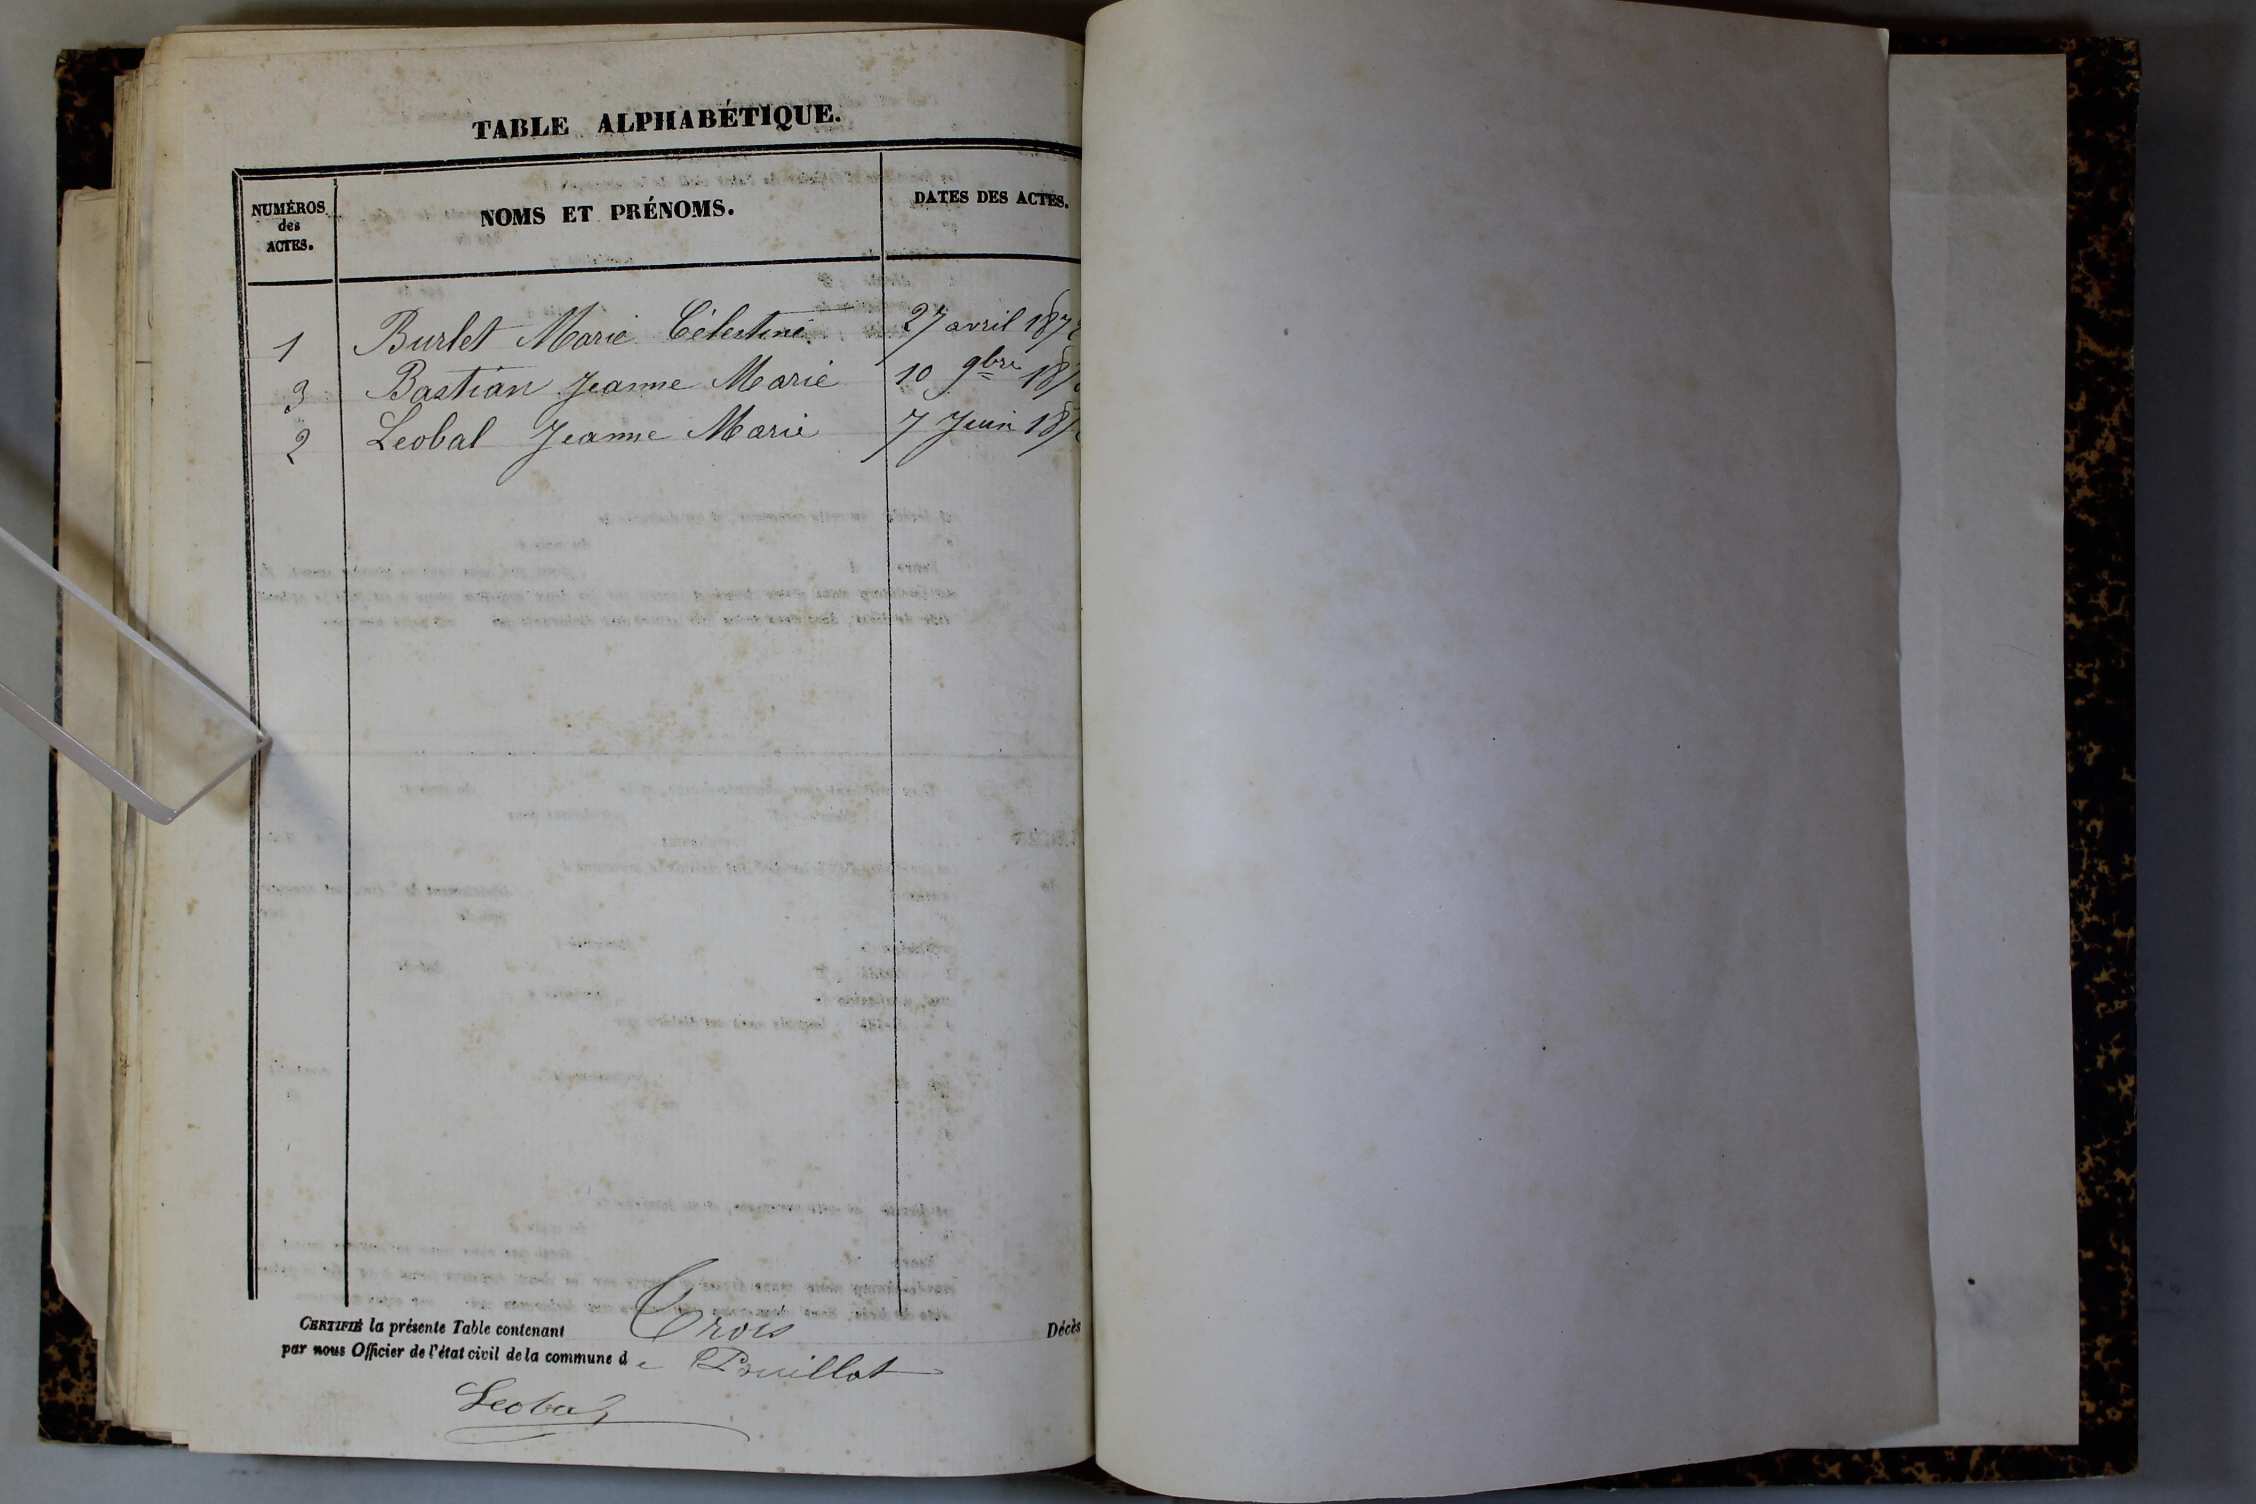 TABLE ALPHABÉTIQUE.
NUMÉROS des ACTES. NOMS ET PRÉNOMS. DATES DES ACTES.
1 Burlet Marie Célestine 27 avril 187
3 Bastian Jeanne Marie 10 9bre 187
2 Leobal Jeanne Marie 7 Juin 187
CERTIFIÉ la présente Table contenant Trois Décès
par nous Officier de l'état civil de la commune de Pruillot
Leobal